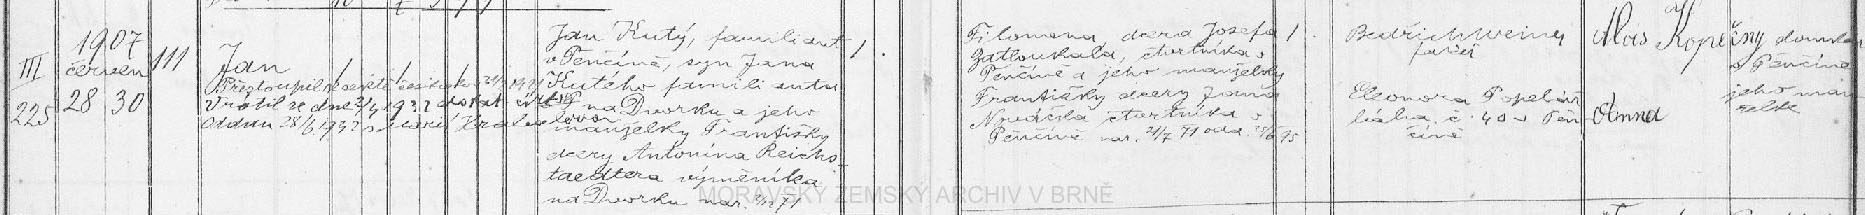 III
225
1907
červen
28 30
111
Jan
Přestoupil k sektě českobr.
Vrátil se dne
oddán 28/6 193
Jan Kutý, familiant
v Pěnčíně, syn Jana
Kutého familianta
na Dvorku a jeho
manželky Františky
dcery Antonína Reichs-
taedtera výměníka
na Dvorku nar. 71
1
Filomena, dcera Josefa
Zatloukala, čtvrtníka v
Pěnčíně a jeho manželky
Františky dcery Jana
čtvrtníka v
Pěnčíně nar. 21/7 71 odd. 95
1
Bedřich Weiner
farář
Eleonora
bába č. 40 v Pěn-
číně
Alois Kopečný domkář
v Pěnčíně
Anna
jeho man-
želka
MORAVSKÝ ZEMSKÝ ARCHIV V BRNĚ